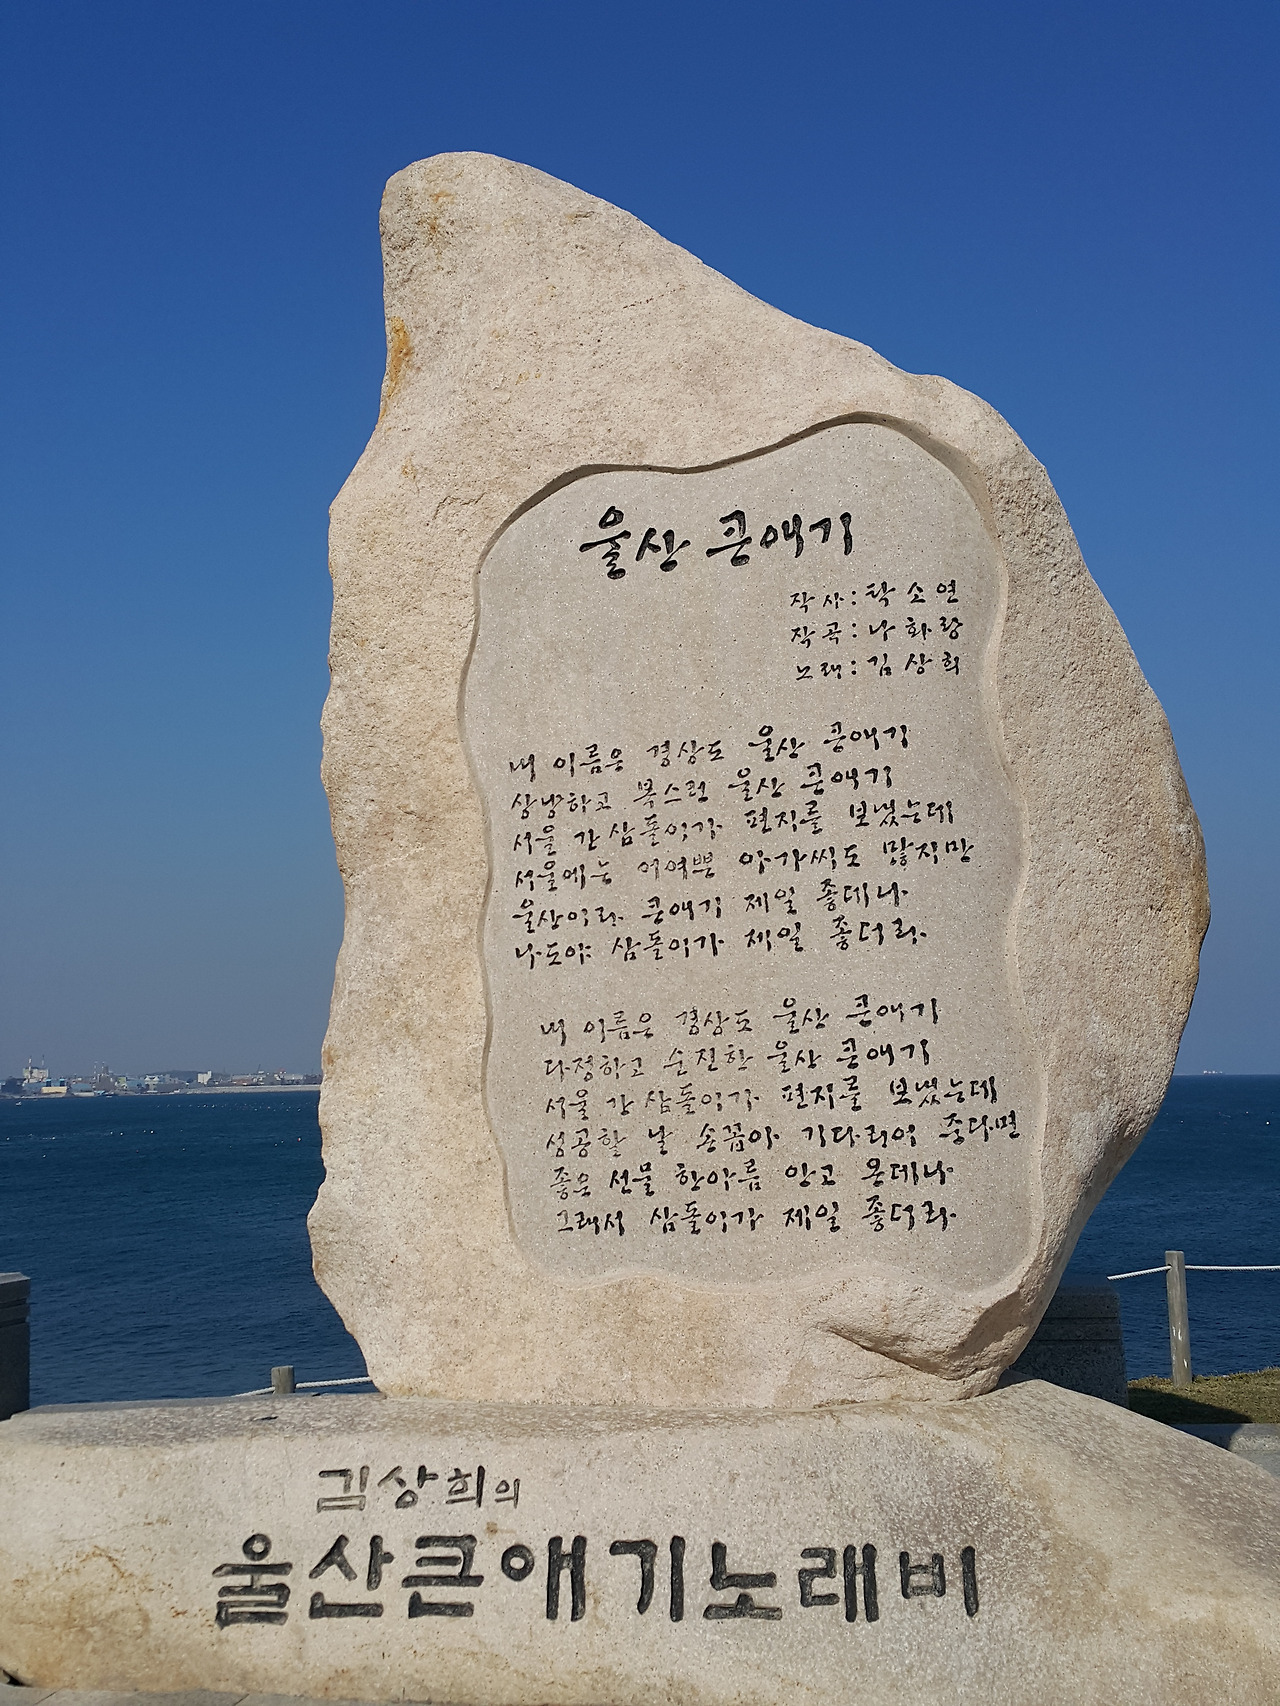 울산 큰애기
작사:탁소연
작곡:나화랑
노래:김상희
내 이름은 경상도 울산 큰애기
상냥하고 복스런 울산 큰애기
서울 간 삼돌이가 편지를 보냈는데
서울에는 어여쁜 아가씨도 많지만
울산이라 큰애기 제일 좋데나
나도야 삼돌이가 제일 좋더라
내 이름은 경상도 울산 큰애기
다정하고 순진한 울산 큰애기
서울 간 삼돌이가 편지를 보냈는데
성공할 날 손꼽아 기다리어 준다면
좋은 선물 한아름 안고 온데나
그래서 삼돌이가 제일 좋더라
김상희의
울산큰애기노래비